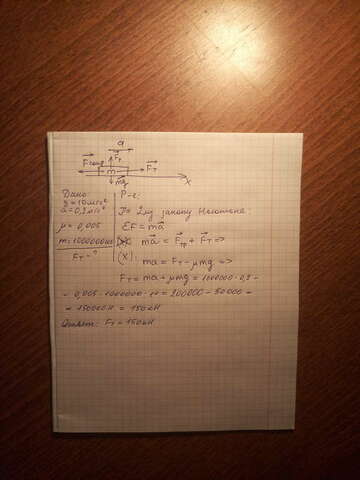 a
Fсопр
Fт
m
Fт
mg
x
Дано:
g = 10 м/с²
a = 0,2 м/с²
μ = 0,005
m = 1000000 кг
Fт - ?
Р-е:
По 2му закону Ньютона:
ΣF = ma
ma = Fтр + Fт =>
(X): ma = Fт - μmg =>
Fт = ma + μmg = 1000000 · 0,2 -
- 0,005 · 1000000 · 10 = 200000 - 50000 =
= 150000 Н = 150 кН
Ответ: Fт = 150 кН